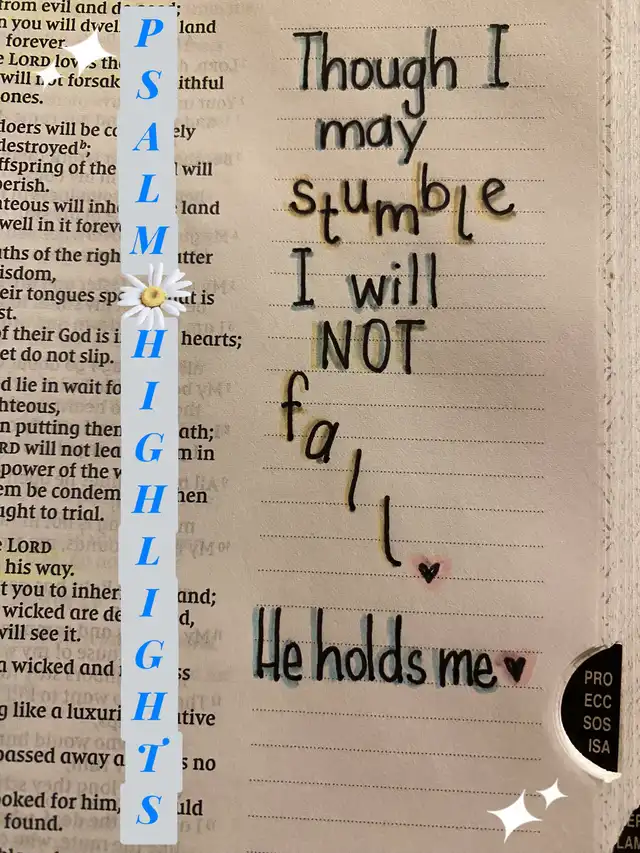 from evil and do good;
n you will dwell land
forever.
e LORD loves the
will not forsake faithful
ones.
doers will be completely
destroyed b;
ffspring of the will
perish.
hteous will inherit land
well in it forever
uths of the righ utter
isdom,
eir tongues spe what is
st.
of their God is in hearts;
et do not slip.
d lie in wait fo
hteous,
n putting them death;
RD will not lea m in
power of the w
em be condem hen
ught to trial.
e LORD
his way.
t you to inher and;
wicked are de d,
will see it.
a wicked and ss
g like a luxuri ative
passed away a s no
ooked for him, uld
found.
PSALM
HIGHLIGHTS
Though I
may
stumble
I will
NOT
fall
He holds me
PRO
ECC
SOS
ISA